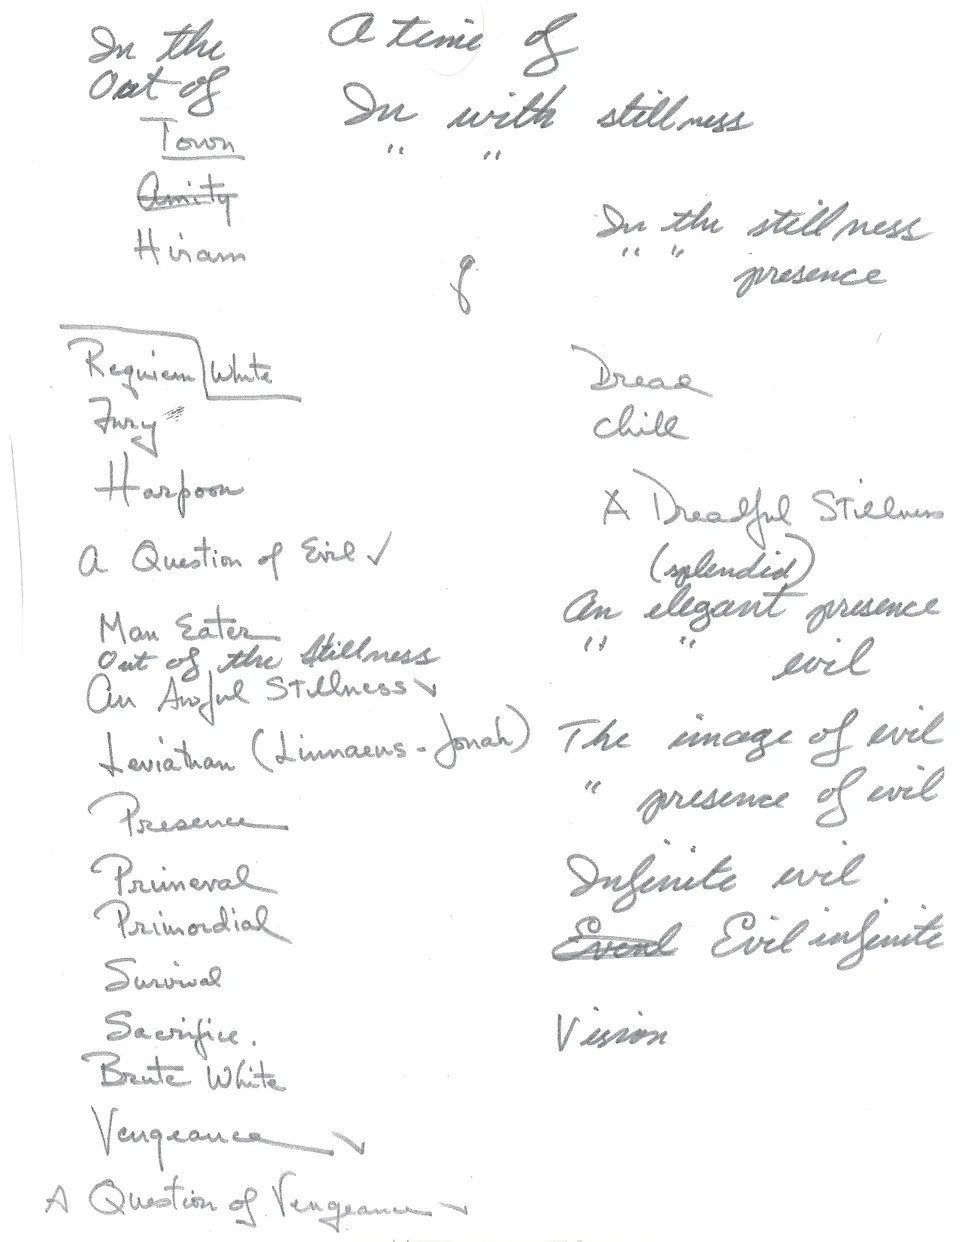 In the
Out of
Town
Amity
Hiram
A time of
In with stillness
" "
In the stillness
" " presence
Requiem White
Fury
Harpoon
A Question of Evil ✓
Man Eater
Out of the Stillness
An Awful Stillness ✓
Leviathan (Linnaeus - Jonah)
Presence
Primeval
Primordial
Survival
Sacrifice.
Brute White
Vengeance ✓
A Question of Vengeance ✓
Dread
Chill
A Dreadful Stillness
(splendid)
An elegant presence
" " evil
The image of evil
" presence of evil
Infinite evil
Evil infinite
Vision